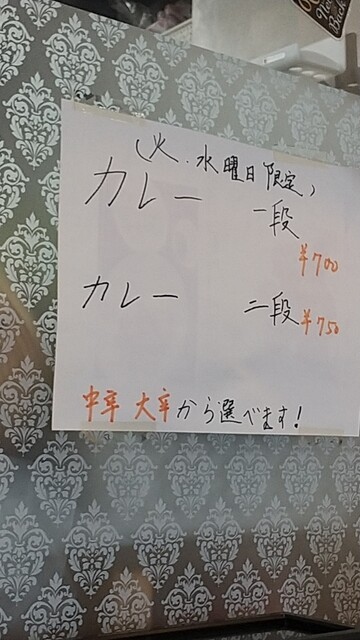 (火.水曜日限定)
カレー 一段
¥700
カレー 二段 ¥750
中辛 大辛から選べます!